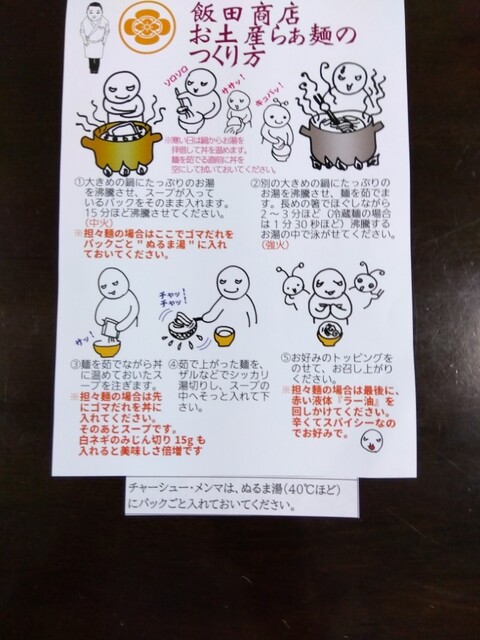 飯田商店
お土産らぁ麺の
つくり方
ソロソロ
ササッ!
キュパッ!
※寒い日は鍋からお湯を
拝借して丼を温めます。
麺を茹でる直前に丼を
空にして拭いておいてください。
①大きめの鍋にたっぷりのお湯
を沸騰させ、スープが入って
いるパックをそのまま入れます。
15分ほど沸騰させてください。
(中火)
※担々麺の場合はここでゴマだれを
パックごと"ぬるま湯"に入れ
ておいてください。
②別の大きめの鍋にたっぷりの
お湯を沸騰させ、麺を茹でま
す。長めの箸でほぐしながら
2～3分ほど(冷蔵麺の場合
は1分30秒ほど)沸騰する
お湯の中で泳がせてください。
(強火)
サッ!
チャッ!
チャッ!
③麺を茹でながら丼
に温めておいたス
ープを注ぎます。
※担々麺の場合は先
にゴマだれを丼に
入れてください。
そのあとスープです。
白ネギのみじん切り15gも
入れると美味しさ倍増です
④茹で上がった麺を、
ザルなどでシッカリ
湯切りし、スープの
中へそっと入れて下
さい。
⑤お好みのトッピングを
のせて、お召し上がり
ください。
※担々麺の場合は最後に、
赤い液体『ラー油』を
回しかけてください。
辛くてスパイシーなの
でお好みで。
チャーシュー・メンマは、ぬるま湯(40℃ほど)
にパックごと入れておいてください。